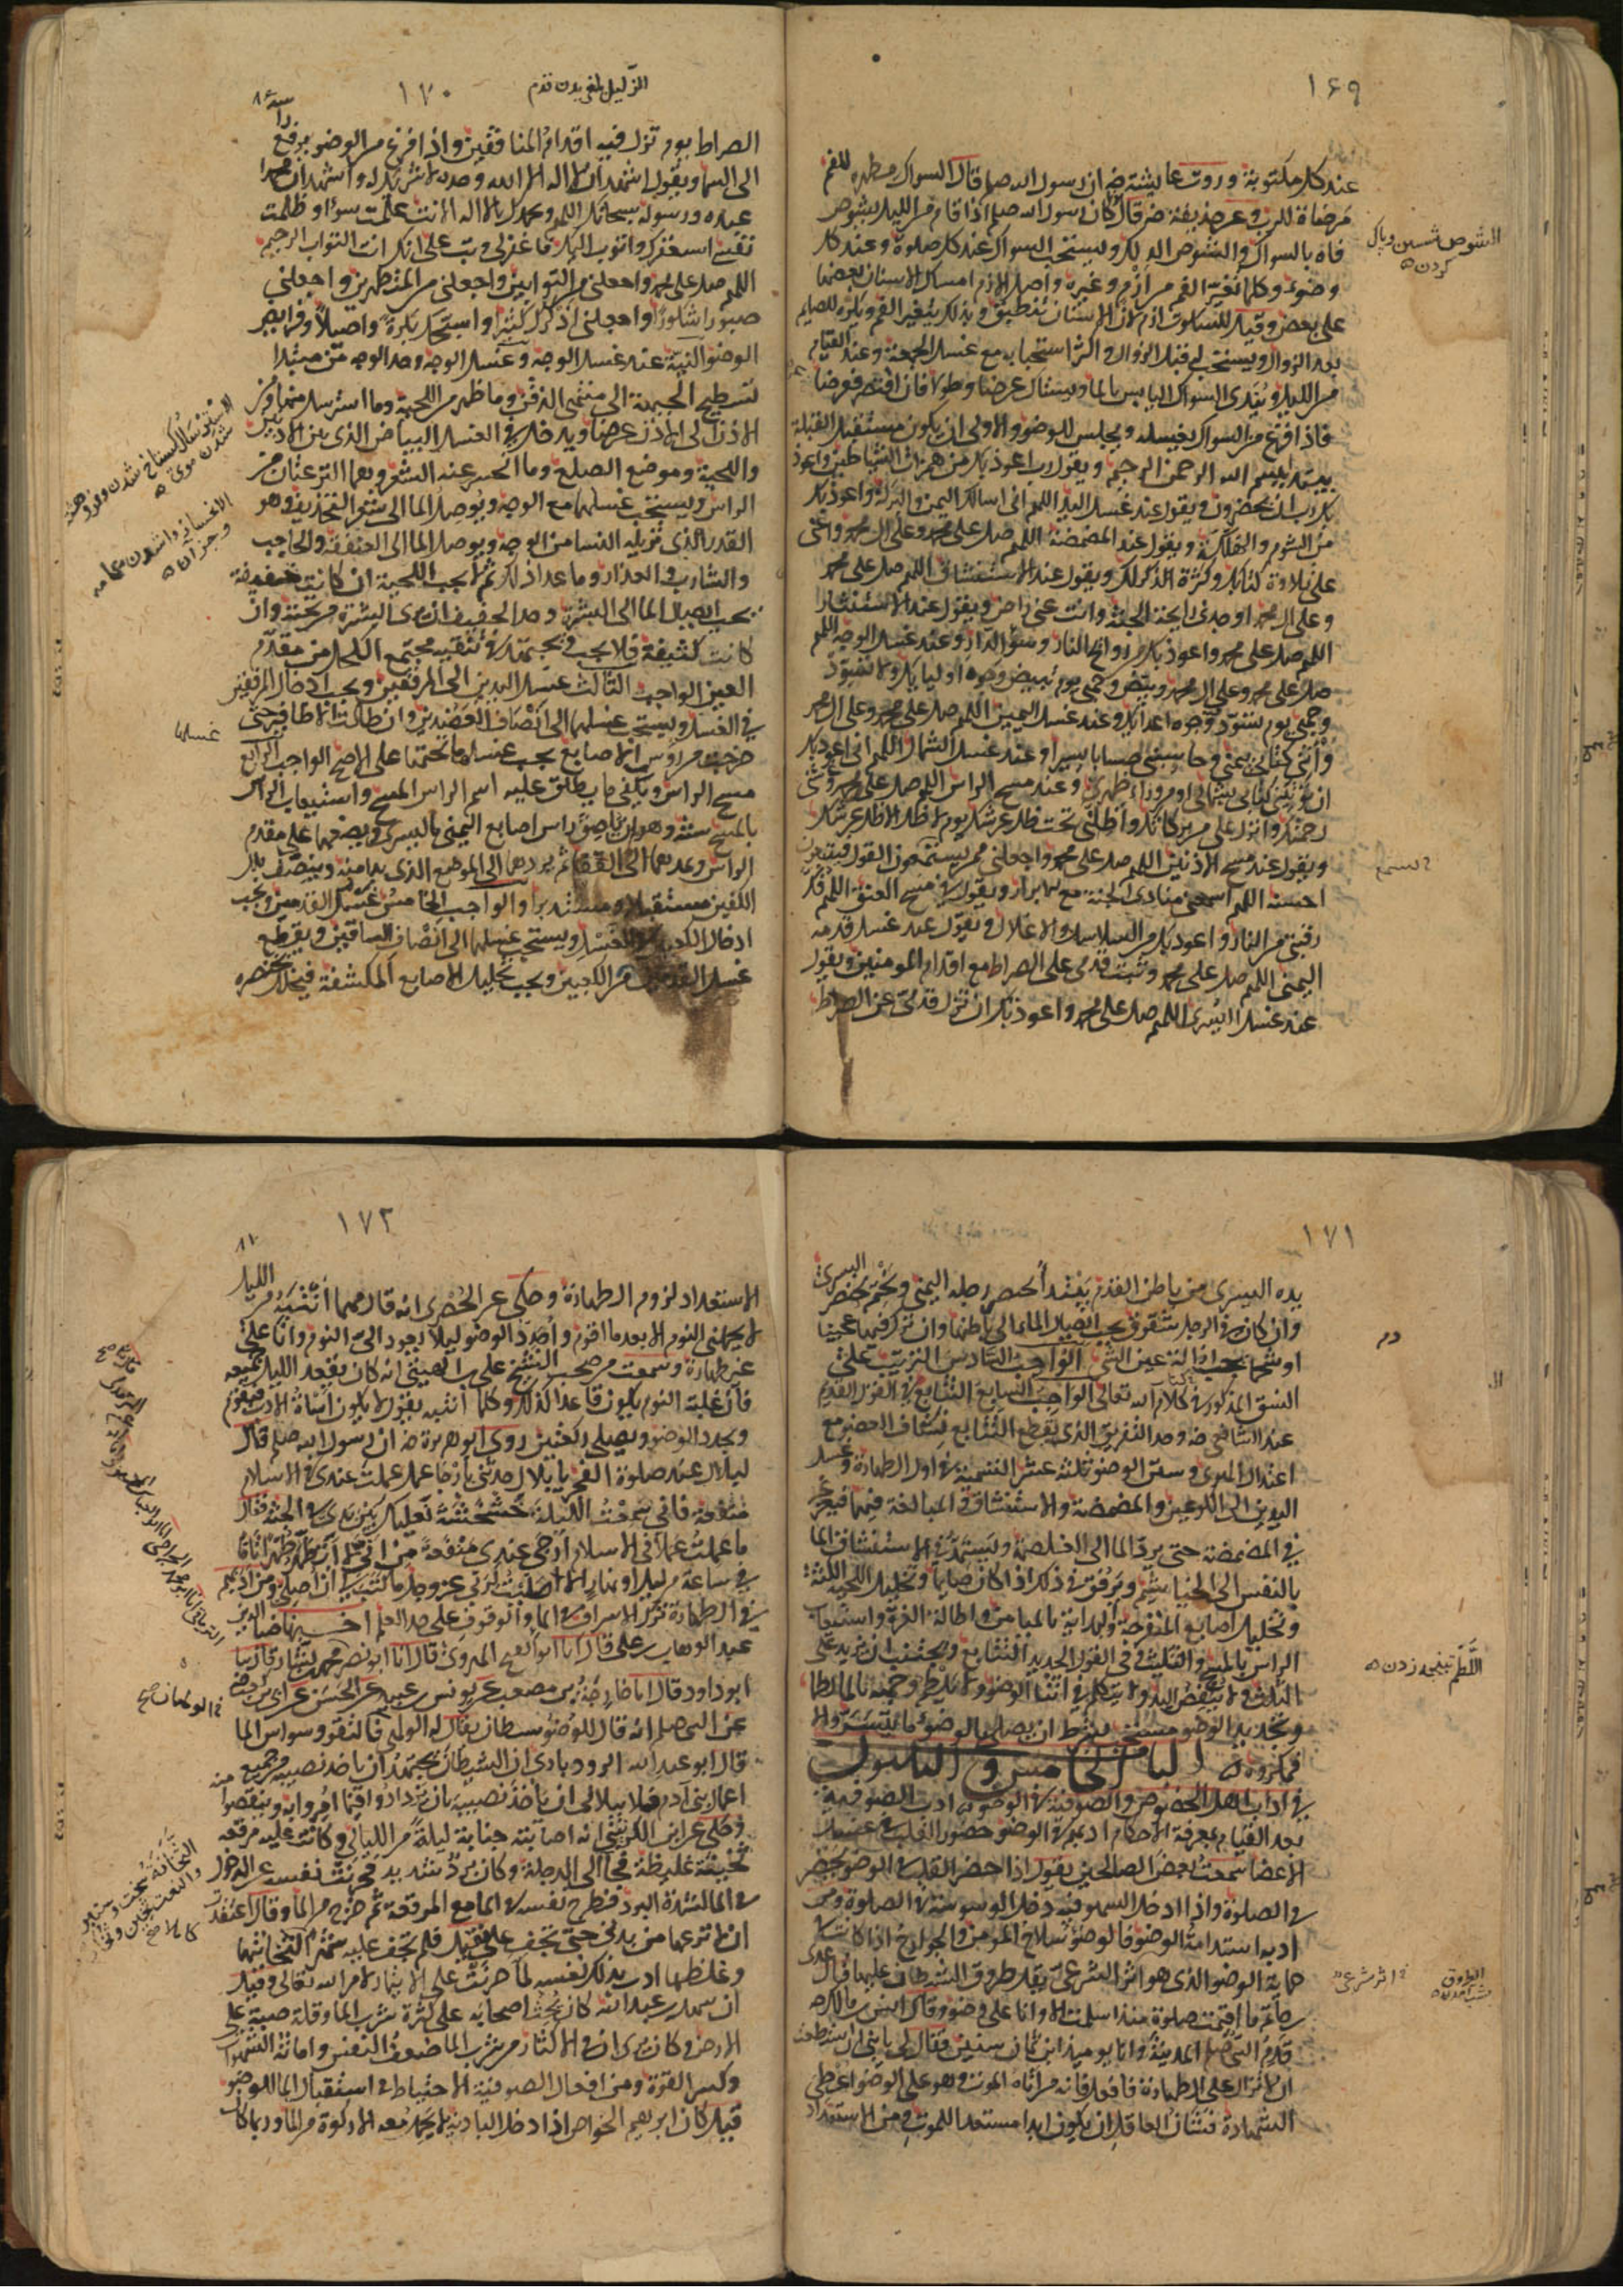 ١٦٩
عند كل مكتوبة وروت عايشة رض ان رسول الله صلم قال السواك مطهرة للفم
مرضاة للرب وعن حذيفة رض قال كان رسول الله صلم اذا قام من الليل يشوص
فاه بالسواك والشوص الدلك ويستحب السواك عند كل صلوة وعند كل
وضوء وكلما تغير الفم من ازم وغيره واصل الازم امساك الاسنان بعضها
على بعض وقيل للسكوت ازم لان الاسنان تنطبق وبذلك يتغير الفم ويكره للصايم
بعد الزوال ويستحب له قبل الزوال واكثر استحبابه مع غسل الجمعة وعند القيام
من الليل ويندى السواك اليابس بالما ويستاك عرضا وطولا فان اقتصر فعرضا
فاذا فرغ من السواك يغسله ويجلس للوضوء والاولى ان يكون مستقبل القبلة
ويبتدئ ببسم الله الرحمن الرحيم ويقول رب اعوذ بك من همزات الشياطين واعوذ
بك رب ان يحضرون ويقول عند غسل اليد اللهم اني اسالك اليمن والبركة واعوذ بك
من الشوم والهلكة ويقول عند المضمضة اللهم صل على محمد وعلى ال محمد واعني
على تلاوة كتابك وكثرة الذكر لك ويقول عند الاستنشاق اللهم صل على محمد
وعلى ال محمد واوجدني رائحة الجنة وانت عني راض ويقول عند الاستنثار
اللهم صل على محمد واعوذ بك من روائح النار وسوء الدار وعند غسل الوجه اللهم
صل على محمد وعلى ال محمد وبيض وجهي يوم تبيض وجوه اوليايك ولا تسود
وجهي يوم تسود وجوه اعدايك وعند غسل اليمين اللهم صل على محمد وعلى ال محمد
وآتني كتابي بيميني وحاسبني حسابا يسيرا وعند غسل الشمال اللهم اني اعوذ بك
ان تؤتيني كتابي بشمالي او من وراء ظهري وعند مسح الراس اللهم صل على محمد وغشني
رحمتك وانزل علي من بركاتك واظلني تحت ظل عرشك يوم لا ظل الا ظل عرشك
ويقول عند مسح الاذنين اللهم صل على محمد واجعلني ممن يستمعون القول فيتبعون
احسنه اللهم اسمعني منادى الجنة مع الابرار ويقول في مسح العنق اللهم فك
رقبتي من النار واعوذ بك من السلاسل والاغلال ويقول عند غسل قدمه
اليمنى اللهم صل على محمد وثبت قدمي على الصراط مع اقدام المومنين ويقول
عند غسل اليسرى اللهم صل على محمد واعوذ بك ان تزل قدمي عن الصراط
الشوص شستن وپاك
كردن
١٧٠
الزليل لغزيدن قدم
الصراط يوم تزل فيه اقدام المنافقين واذا فرغ من الوضوء يرفع راسه
الى السما ويقول اشهد ان لا اله الا الله وحده لا شريك له واشهد ان محمدا
عبده ورسوله سبحانك اللهم وبحمدك لا اله الا انت عملت سوءا وظلمت
نفسي استغفرك واتوب اليك فاغفر لي وتب علي انك انت التواب الرحيم
اللهم صل على محمد واجعلني من التوابين واجعلني من المتطهرين واجعلني
صبورا شكورا واجعلني اذكرك كثيرا واسبحك بكرة واصيلا وفرايض
الوضوء النية عند غسل الوجه وغسل الوجه وحد الوجه من مبتدا
تسطيح الجبهة الى منتهى الذقن وما ظهر من اللحية وما استرسل منها ومن
الاذن الى الاذن عرضا ويدخل في الغسل البياض الذي بين الاذنين
واللحية وموضع الصلع وما انحسر عنه الشعر وهما النزعتان من
الراس ويستحب غسلهما مع الوجه ويوصل الما الى شعر التحذيف وهو
القدر الذي تزيله النسا من الوجه ويوصل الما الى العنفقة والحاجب
والشارب والعذار وما عدا ذلك لا يجب ثم اللحية ان كانت خفيفة
يجب ايصال الما الى البشرة وحد الخفيف ان ترى البشرة من تحته وان
كانت كثيفة فلا يجب ويجتهد في تنقية مجتمع الكحل من مقدم
العين الواجب الثالث غسل اليدين الى المرفقين ويجب ادخال المرفقين
في الغسل ويستحب غسلهما الى انصاف العضدين وان طالت الاظافير حتى
خرجت من رؤس الاصابع يجب غسل ما تحتها على الاصح الواجب الرابع
مسح الراس ويكفي ما يطلق عليه اسم الراس المسح واستيعاب الراس
بالمسح سنة وهو ان يلصق راس اصابع اليمنى باليسرى ويضعهما على مقدم
الراس ويمدهما الى القفا ثم يردهما الى الموضع الذي بدا منه وينصف بلل
الكفين مستقبلا ومستدبرا والواجب الخامس غسل القدمين ويجب
ادخال الكعبين في الغسل ويستحب غسلهما الى انصاف الساقين ويقطع
غسل القدمين من الكعبين ويجب تخليل الاصابع الملتفة فيخلل بخنصره
غسلها
١٧١
يده اليسرى من باطن القدم يبتدا بخنصر رجله اليمنى ويختم بخنصر اليسرى
وان كان في الرجل شقوق يجب ايصال الما الى باطنها وان ترك فيها عجينا
او شحما يجب ازالة عين الشي الواجب السادس الترتيب على
النسق المذكور في كلام الله تعالى الواجب السابع التتابع في القول القديم
عند الشافعي رض وحد التفريق الذي يقطع التتابع نشاف العضو مع
اعتدال الهوى وسنن الوضوء ثلثة عشر التسمية في اول الطهارة وغسل
اليدين الى الكوعين والمضمضة والاستنشاق والمبالغة فيهما فيغرغر
في المضمضة حتى يرد الما الى الغلصمة ويستمد في الاستنشاق الما
بالنفس الى الخياشيم ويرفق في ذلك اذا كان صايما وتخليل اللحية الكثة
وتخليل اصابع المنفرجة والبداية بالميامن واطالة الغرة واستيعاب
الراس بالمسح والتثليث وفي القول الجديد التتابع ويجتنب ان يزيد على
الثلث ولا ينفض اليد ولا يتكلم في اثنا الوضوء ولا يلطم وجهه بالما لطما
وتجديد الوضوء مستحب بشرط ان يصلي بالوضوء ما تيسر والا
فمكروه الباب الخامس والثلثون
في اداب اهل الخصوص والصوفية في الوضوء اداب الصوفية
بعد القيام بمعرفة الاحكام ادبهم في الوضوء حضور القلب في غسل
الاعضا سمعت بعض الصالحين يقول اذا حضر القلب في الوضوء يحضر
في الصلوة واذا دخل السهو فيه دخل الوسوسة في الصلوة ومن
ادبهم استدامة الوضوء فالوضوء سلاح المومن والجوارح اذا كانت في
حماية الوضوء الذي هو اثر شرعي يقل طروق الشيطان عليها قال عدي
بن حاتم ما اقيمت صلوة منذ اسلمت الا وانا على وضوء وقال انس بن مالك
قدم النبي صلم المدينة وانا يوميذ ابن ثمان سنين فقال لي يا بني ان استطعت
ان لا تزال على الطهارة فافعل فانه من اتاه الموت وهو على الوضوء اعطي
الشهادة فشان العاقل ان يكون ابدا مستعدا للموت ومن الاستعداد
اللطم تپنچه زدن
١٧٢
الاستعداد لزوم الطهارة وحكي عن الحصري انه قال مهما انتبه من الليل
لا يحملني النوم الا بعد ما اقوم واجدد الوضوء ليلا يعود الي النوم وانا على
غير طهارة وسمعت من صحب الشيخ علي بن الهيتي انه كان يقعد الليل جميعه
فان غلبه النوم يكون قاعدا كذلك وكلما انتبه يقول لا يكون اساة الادب فيقوم
ويجدد الوضوء ويصلي ركعتين روى ابو هريرة رض ان رسول الله صلم قال
لبلال عند صلوة الفجر يا بلال حدثني بارجا عمل عملته عندك في الاسلام
منفعة فاني سمعت الليلة خشخشة نعليك بين يدي في الجنة فقال
ما عملت عملا في الاسلام ارجى عندي منفعة من اني لم اتطهر طهرا تاما
في ساعة من ليل او نهار الا صليت لربي عز وجل ما كتب لي ان اصلي ومن ادبهم
في الطهارة ترك الاسراف في الما والوقوف على حد العلم اخبرنا ضيا الدين
عبد الوهاب بن علي قال انا ابو الفتح الهروي قال انا ابو نصر
ابو داود قال نا خارجة بن مصعب عن يونس بن عبيد عن الحسن عن
عن النبي صلم انه قال للوضوء شيطان يقال له الولهان فاتقوا وسواس الما
قال ابو عبد الله الرودباري ان الشيطان يجتهد ان ياخذ نصيبه من جميع
اعمال بني ادم فلا يبالي ان ياخذ نصيبه بان يزدادوا فيما امروا به او ينقصوا منه
وحكي عن ابن الكريني انه اصابته جنابة ليلة من الليالي وكانت عليه مرقعة
ثخينة غليظة فجا الى الدجلة وكان برد شديد فحرنت نفسه عن الدخول
في الما لشدة البرد فطرح نفسه في الما مع المرقعة ثم خرج من الما وقال اعتقدت
ان لا انزعها من بدني حتى تجف علي فلم تجف عليه شهرا لثخانتها
وغلظها ادب بذلك نفسه لما حرنت على الايتمار لامر الله تعالى وقيل
ان سهل بن عبد الله كان يحث اصحابه على كثرة شرب الما وقلة صبه على
الارض وكان يرى ان في الاكثار من شرب الما ضعف النفس واماتة الشهوات
وكسر القوة ومن افعال الصوفية الاحتياط في استبقا الما للوضوء
قيل كان ابرهيم الخواص اذا دخل البادية لا يحمل معه الا ركوة من الما وربما كان